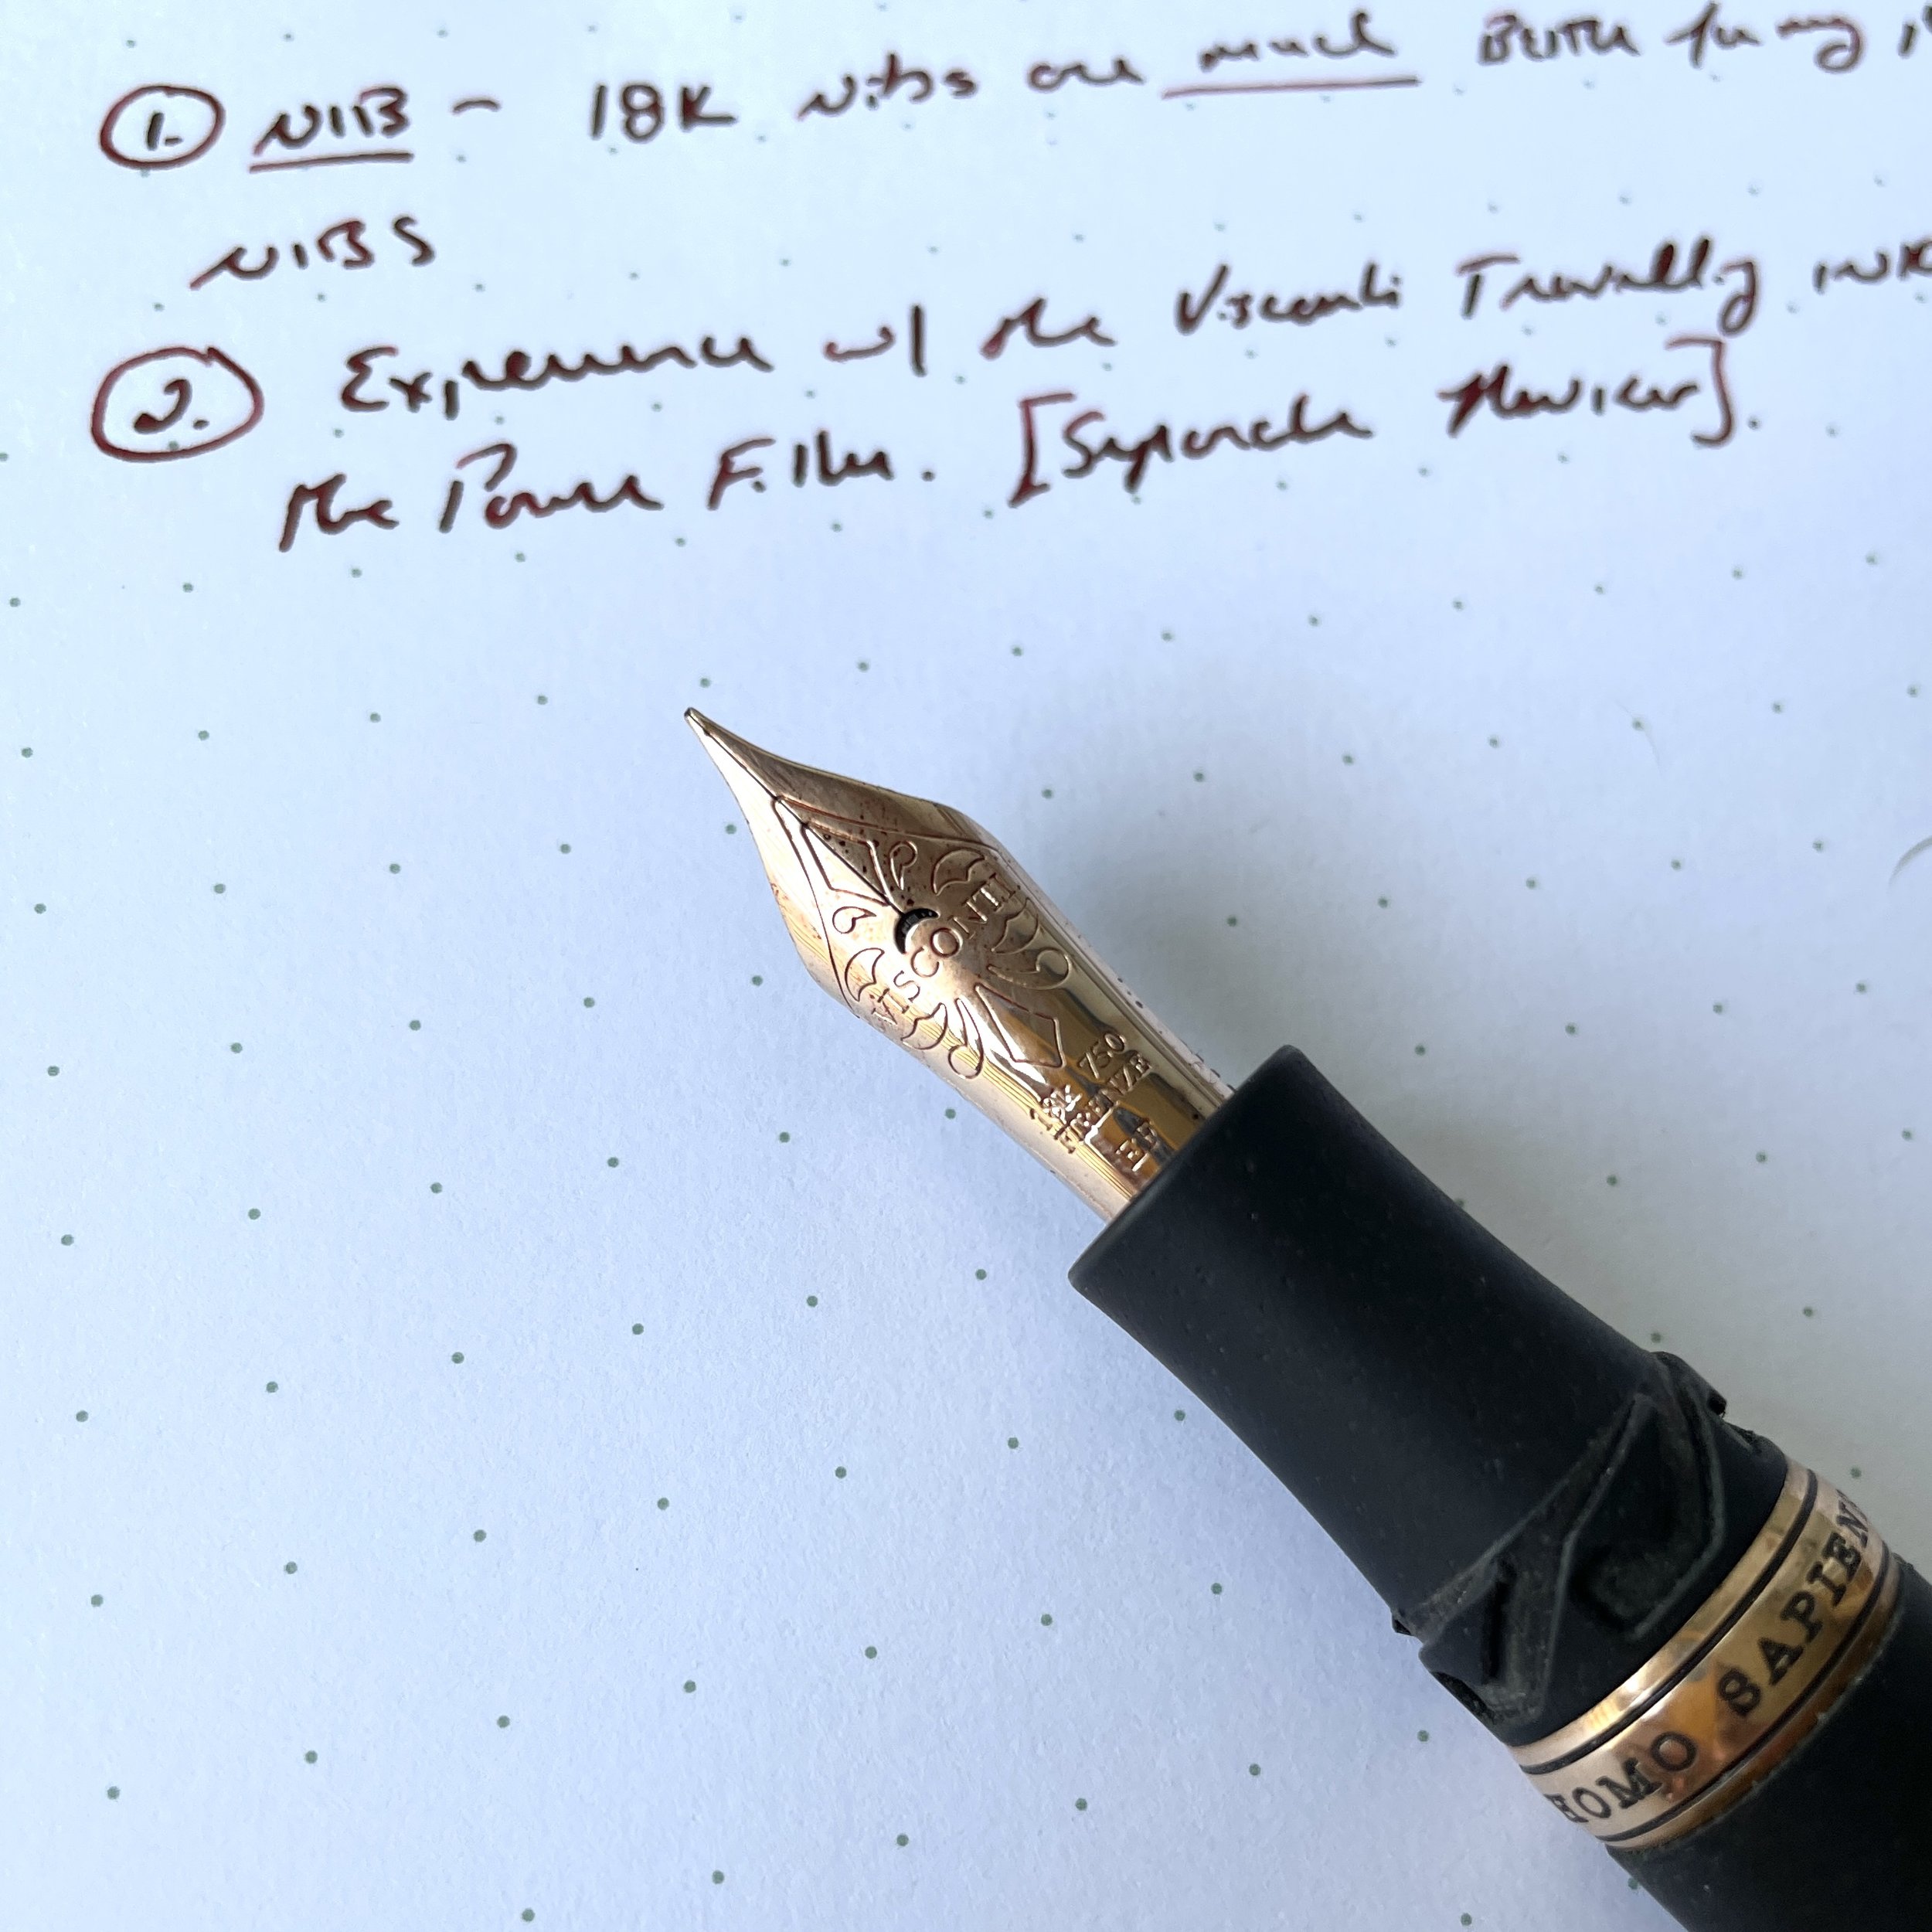 1. NIB - 18K nibs are much BETTER for my
NIBS
2. Experience w/ the Visconti Travelling INK
the Power Filler. [Separate Reviews].
VISCONTI
18k 750
FIRENZE
EF
HOMO SAPIENS